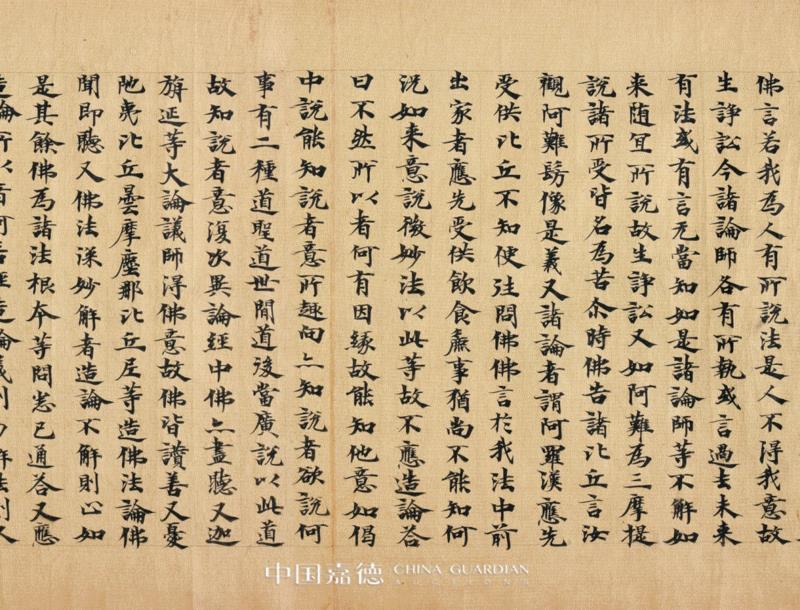 佛言若我為人有所說法是人不得我意故
生諍訟今諸論師各有所執或言過去未來
有法或有言无當知如是諸論師等不解如
来随冝所說故生諍訟又如阿難為三摩提
說諸所受皆名為苦尒時佛告諸比丘言汝
觀阿難髣像是義又諸論者謂阿羅漢應先
受供比丘不知便往問佛佛言於我法中前
出家者應先受供飲食麁事猶尚不能知何
況如来意說微妙法以此等故不應造論荅
曰不然所以者何有因緣故能知他意如偈
中說能知說者意所趣向亦知說者欲說何
事有二種道聖道世間道後當廣說以此道
故知說者意復次異論經中佛亦盡聽又迦
旃延等大論議師得佛意故佛皆讚善又憂
陁夷比丘曇摩塵那比丘尼等造佛法論佛
聞即聽又佛法深妙解者造論不解則止如
是其餘佛為諸法根本等問悉已通荅又應
造論所以者何若經造論義則易解法則久
中国嘉德 CHINA GUARDIAN
AUCTIONS